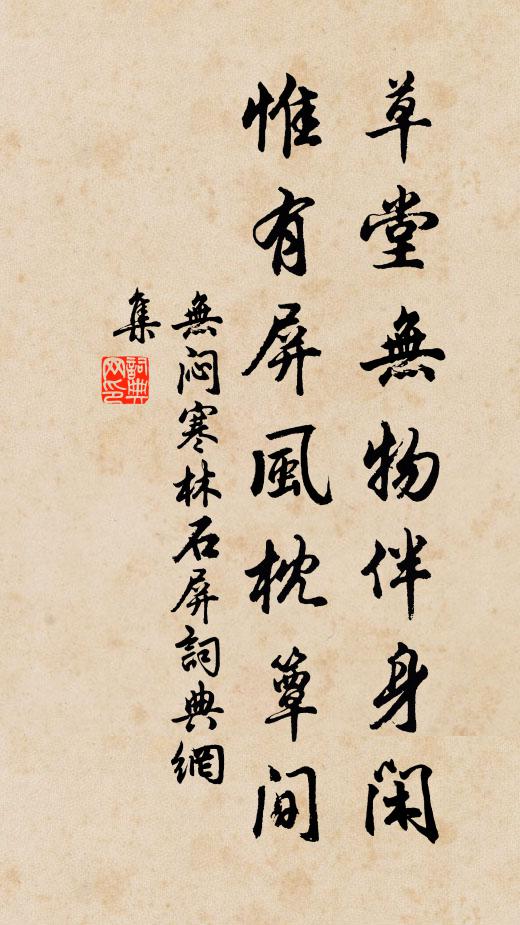 草堂無物伴身閑
惟有屏風枕簟間
無悶寒林石屏詞典網
集
詞典网印